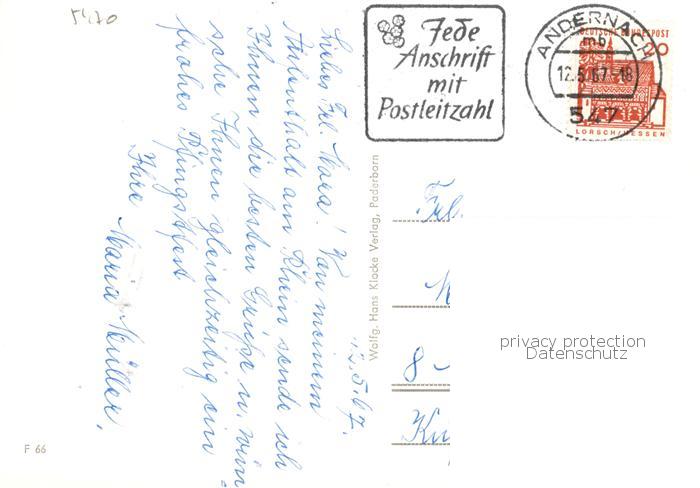 5470
Jede
Anschrift
mit
Postleitzahl
ANDERNACH
mb
12.5.67-18
547
DEUTSCHE BUNDESPOST
20
LORSCH/HESSEN
12.5.67.
Liebes Frl. Mara! Von meinem
Aufenthalt am Rhein sende ich
Ihnen die besten Grüße u. wün
sche Ihnen gleichzeitig ein
frohes Pfingstfest
Ihre
Maria Müller.
Wolfg. Hans Klocke Verlag, Paderborn
Frl.
M
8-
privacy protection
Datenschutz
F 66